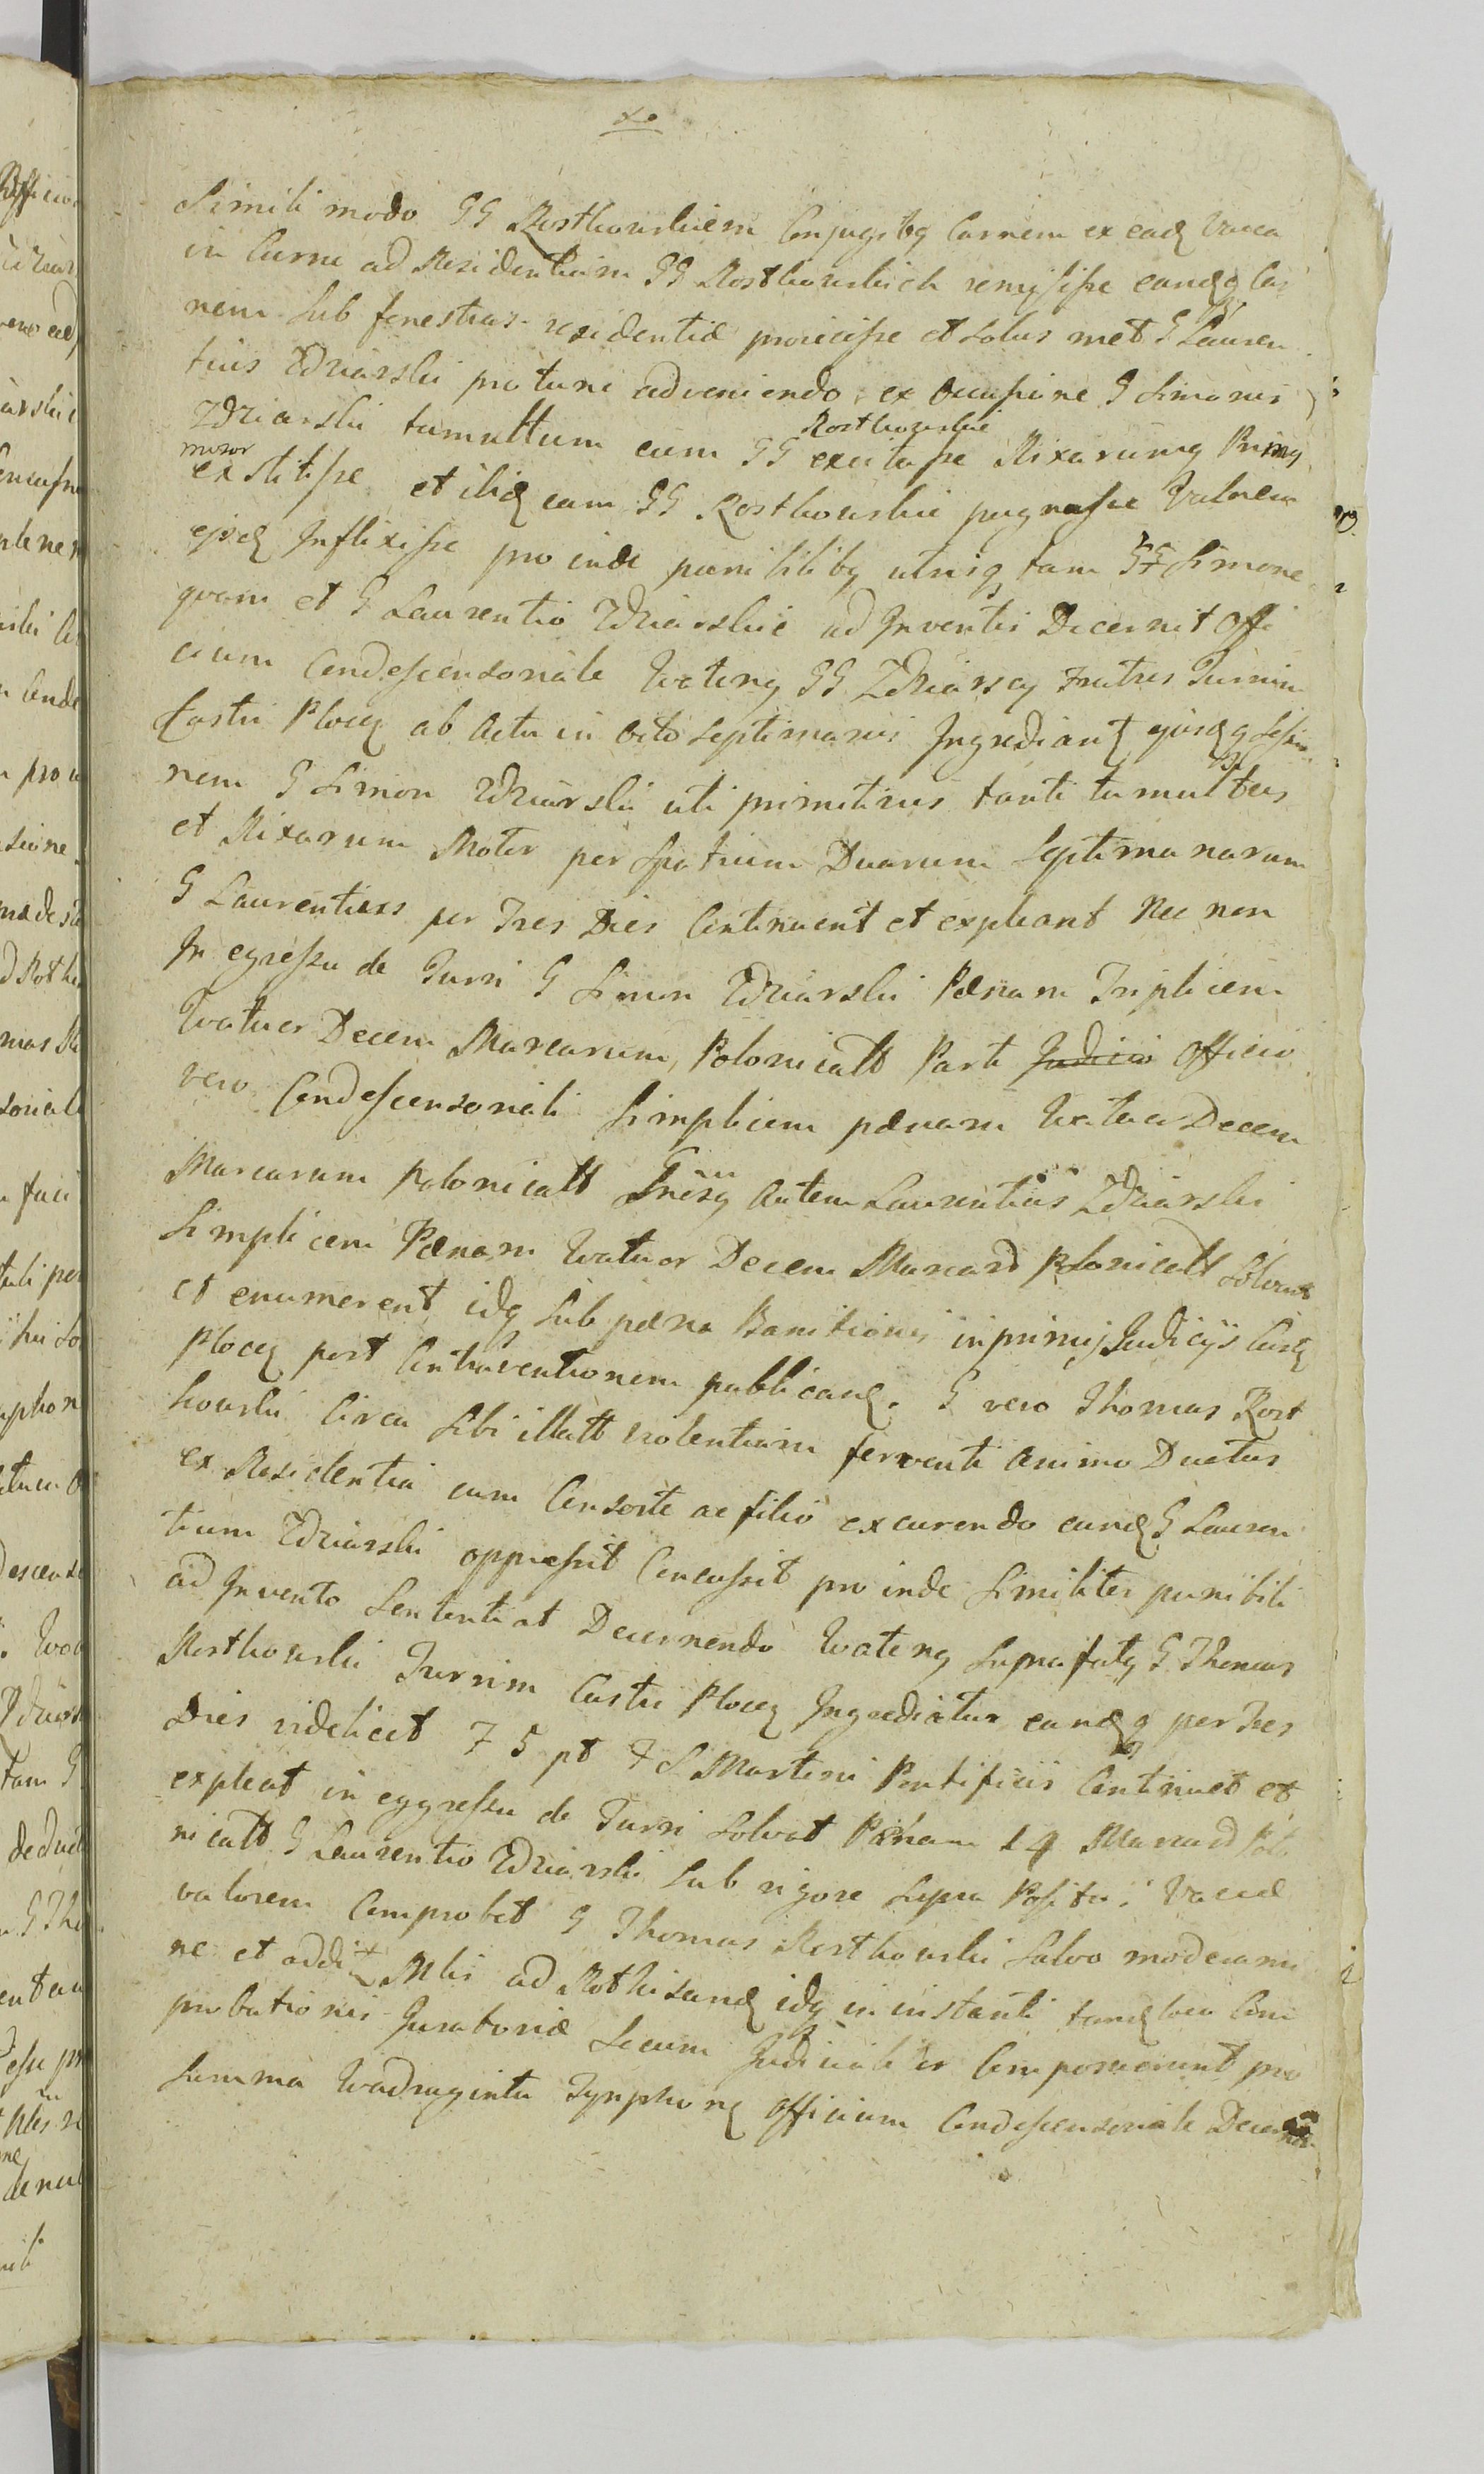 Simili modo GG Rostkowskiem Conjugibq Carnem ex eadq Vacca
in Curru ad Residentiam GG Rostkowskich remisisse eandqq Car
nem sub fenestras residentiæ projecisse et solus met G Lauren
tius Zdziarski pro tunc adveniendo ex occasione G Simonis
Zdziarski tumultum cum GG Rostkowskie excitasse Rixarumq Primq
motor exstitisse et ibidq cum GG Rostkowskie pugnasse Vulnera
ejsdq Inflixisse pro inde punibilibq utrisq tam GG Simone
quam et G Laurentio Zdziarskie ad Inventis Decernit Offi
cium Condescensoriale Wateng GG Zdziarscy Fratres Turrim
Castri Plocq ab Actu in octo septimanis Ingrediant ejusdqq Sessio
nem G Simon Zdziarski uti primitivus tanti tumultus
et Rixarum Motor per Spatium Duarum Septimanarum
G Laurentius per Tres Dies Continuent et expleant Nec non
In egressu de Turri G Simon Zdziarski Pænam Triplicem
Watuor Decem Marcarum, Polonicatt Parti Judicio Officio
vero Condescensoriali Simplicem pænam Watuor Decem
Marcarum Polonicatt Gnrsq Autem Laurentius Zdziarski
Simplicem Pænam Watuor Decem Marcard Polonicatt Solvant
et enumerent idq sub pæna Banitionis in primis Judicijs Castq
Plocq post Contraventionem publicandq. G vero Thomas Rost
kowski Circa sibi illatt violentiam ferventi Animo Ductus
ex Residentia cum Consorte ac filio excurendo eundq G Lauren
tium Zdziarski oppressit Concussit pro inde similiter punibili
ad Invento Sententiat Decernendo Wateng Suprafatq G Thomas
Rostkowski Turrim Castri Plocq Ingrediatur eandqq per Tres
Dies videlicet F 5 pt F S Martini Pontificis Continuet et
expleat in eggressu de Turri solvat Pænam 14 Marcard Polo
nicatt G Laurentio Zdziarski sub rigore supra Posito; Vaccæ
valorem Comprobet G Thomas Rostkowski Salvo moderami
ne et addit Mbi ad Rothisandq idq in instanti tandq loco Com
probationis Juratoriæ Secum Judicialiter Composuerunt pro
Summa Wadraginta Tynphonq Officium Condescensoriale Decernit